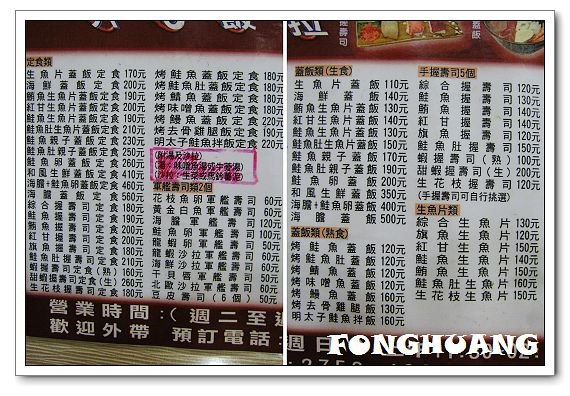 飯
定食類
生魚片蓋飯定食170元
海鮮蓋飯定食200元
鮪魚生魚片蓋飯定食190元
紅甘生魚片蓋飯定食200元
旗魚生魚片蓋飯定食190元
鮭魚肚生魚片蓋飯定食210元
鮭魚親子蓋飯定食230元
鮭魚肚親子蓋飯定食250元
鮭魚卵蓋飯定食260元
和風生鮮蓋飯定食410元
海膽+鮭魚卵蓋飯定食460元
海膽蓋飯定食560元
綜合握壽司定食180元
鮭魚握壽司定食190元
鮪魚握壽司定食180元
紅甘握壽司定食200元
旗魚握壽司定食180元
鮭魚肚握壽司定食210元
蝦握壽司定食(熟)160元
甜蝦握壽司定食260元
生花枝握壽司定食180元
烤鮭魚蓋飯定食180元
烤鮭魚肚蓋飯定食180元
烤鯖魚蓋飯定食180元
烤味噌魚蓋飯定食180元
烤鰻魚蓋飯定食220元
烤去骨雞腿飯定食190元
明太子鮭魚拌飯定食220元
(附湯及沙拉)
軍艦壽司類2個
花枝魚卵軍艦壽司60元
黃金白魚軍艦壽司60元
海膽軍艦壽司120元
鮭魚卵軍艦壽司100元
龍蝦卵軍艦壽司50元
龍蝦沙拉軍艦壽司60元
海鮮沙拉軍艦壽司50元
干貝唇軍艦壽司60元
北歐沙拉軍艦壽司60元
豆皮壽司(6個)50元
營業時間:(週二至週
歡迎外帶 預訂電話:
拉
握壽司
蓋飯
蓋飯類(生食)
生魚片蓋飯110元
海鮮蓋飯140元
鮪魚生魚片蓋飯130元
紅甘生魚片蓋飯140元
旗魚生魚片蓋飯130元
鮭魚肚生魚片蓋飯150元
鮭魚親子蓋飯170元
鮭魚肚親子蓋飯190元
鮭魚卵蓋飯200元
和風生鮮蓋飯350元
海膽+鮭魚卵蓋飯400元
海膽蓋飯500元
蓋飯類(熟食)
烤鮭魚蓋飯120元
烤鮭魚肚蓋飯120元
烤鯖魚蓋飯120元
烤味噌魚蓋飯120元
烤鰻魚蓋飯160元
烤去骨雞腿飯130元
明太子鮭魚拌飯160元
手握壽司5個
綜合握壽司120元
鮭魚握壽司130元
鮪魚握壽司120元
紅甘握壽司140元
旗魚握壽司120元
鮭魚肚握壽司150元
蝦握壽司(熟)100元
甜蝦握壽司200元
生花枝握壽司120元
(手握壽司可自行挑選)
生魚片類
綜合生魚片130元
旗魚生魚片120元
紅甘生魚片150元
鮭魚生魚片140元
鮪魚生魚片150元
鮭魚肚生魚片160元
生花枝生魚片150元
週日
FONGHUANG